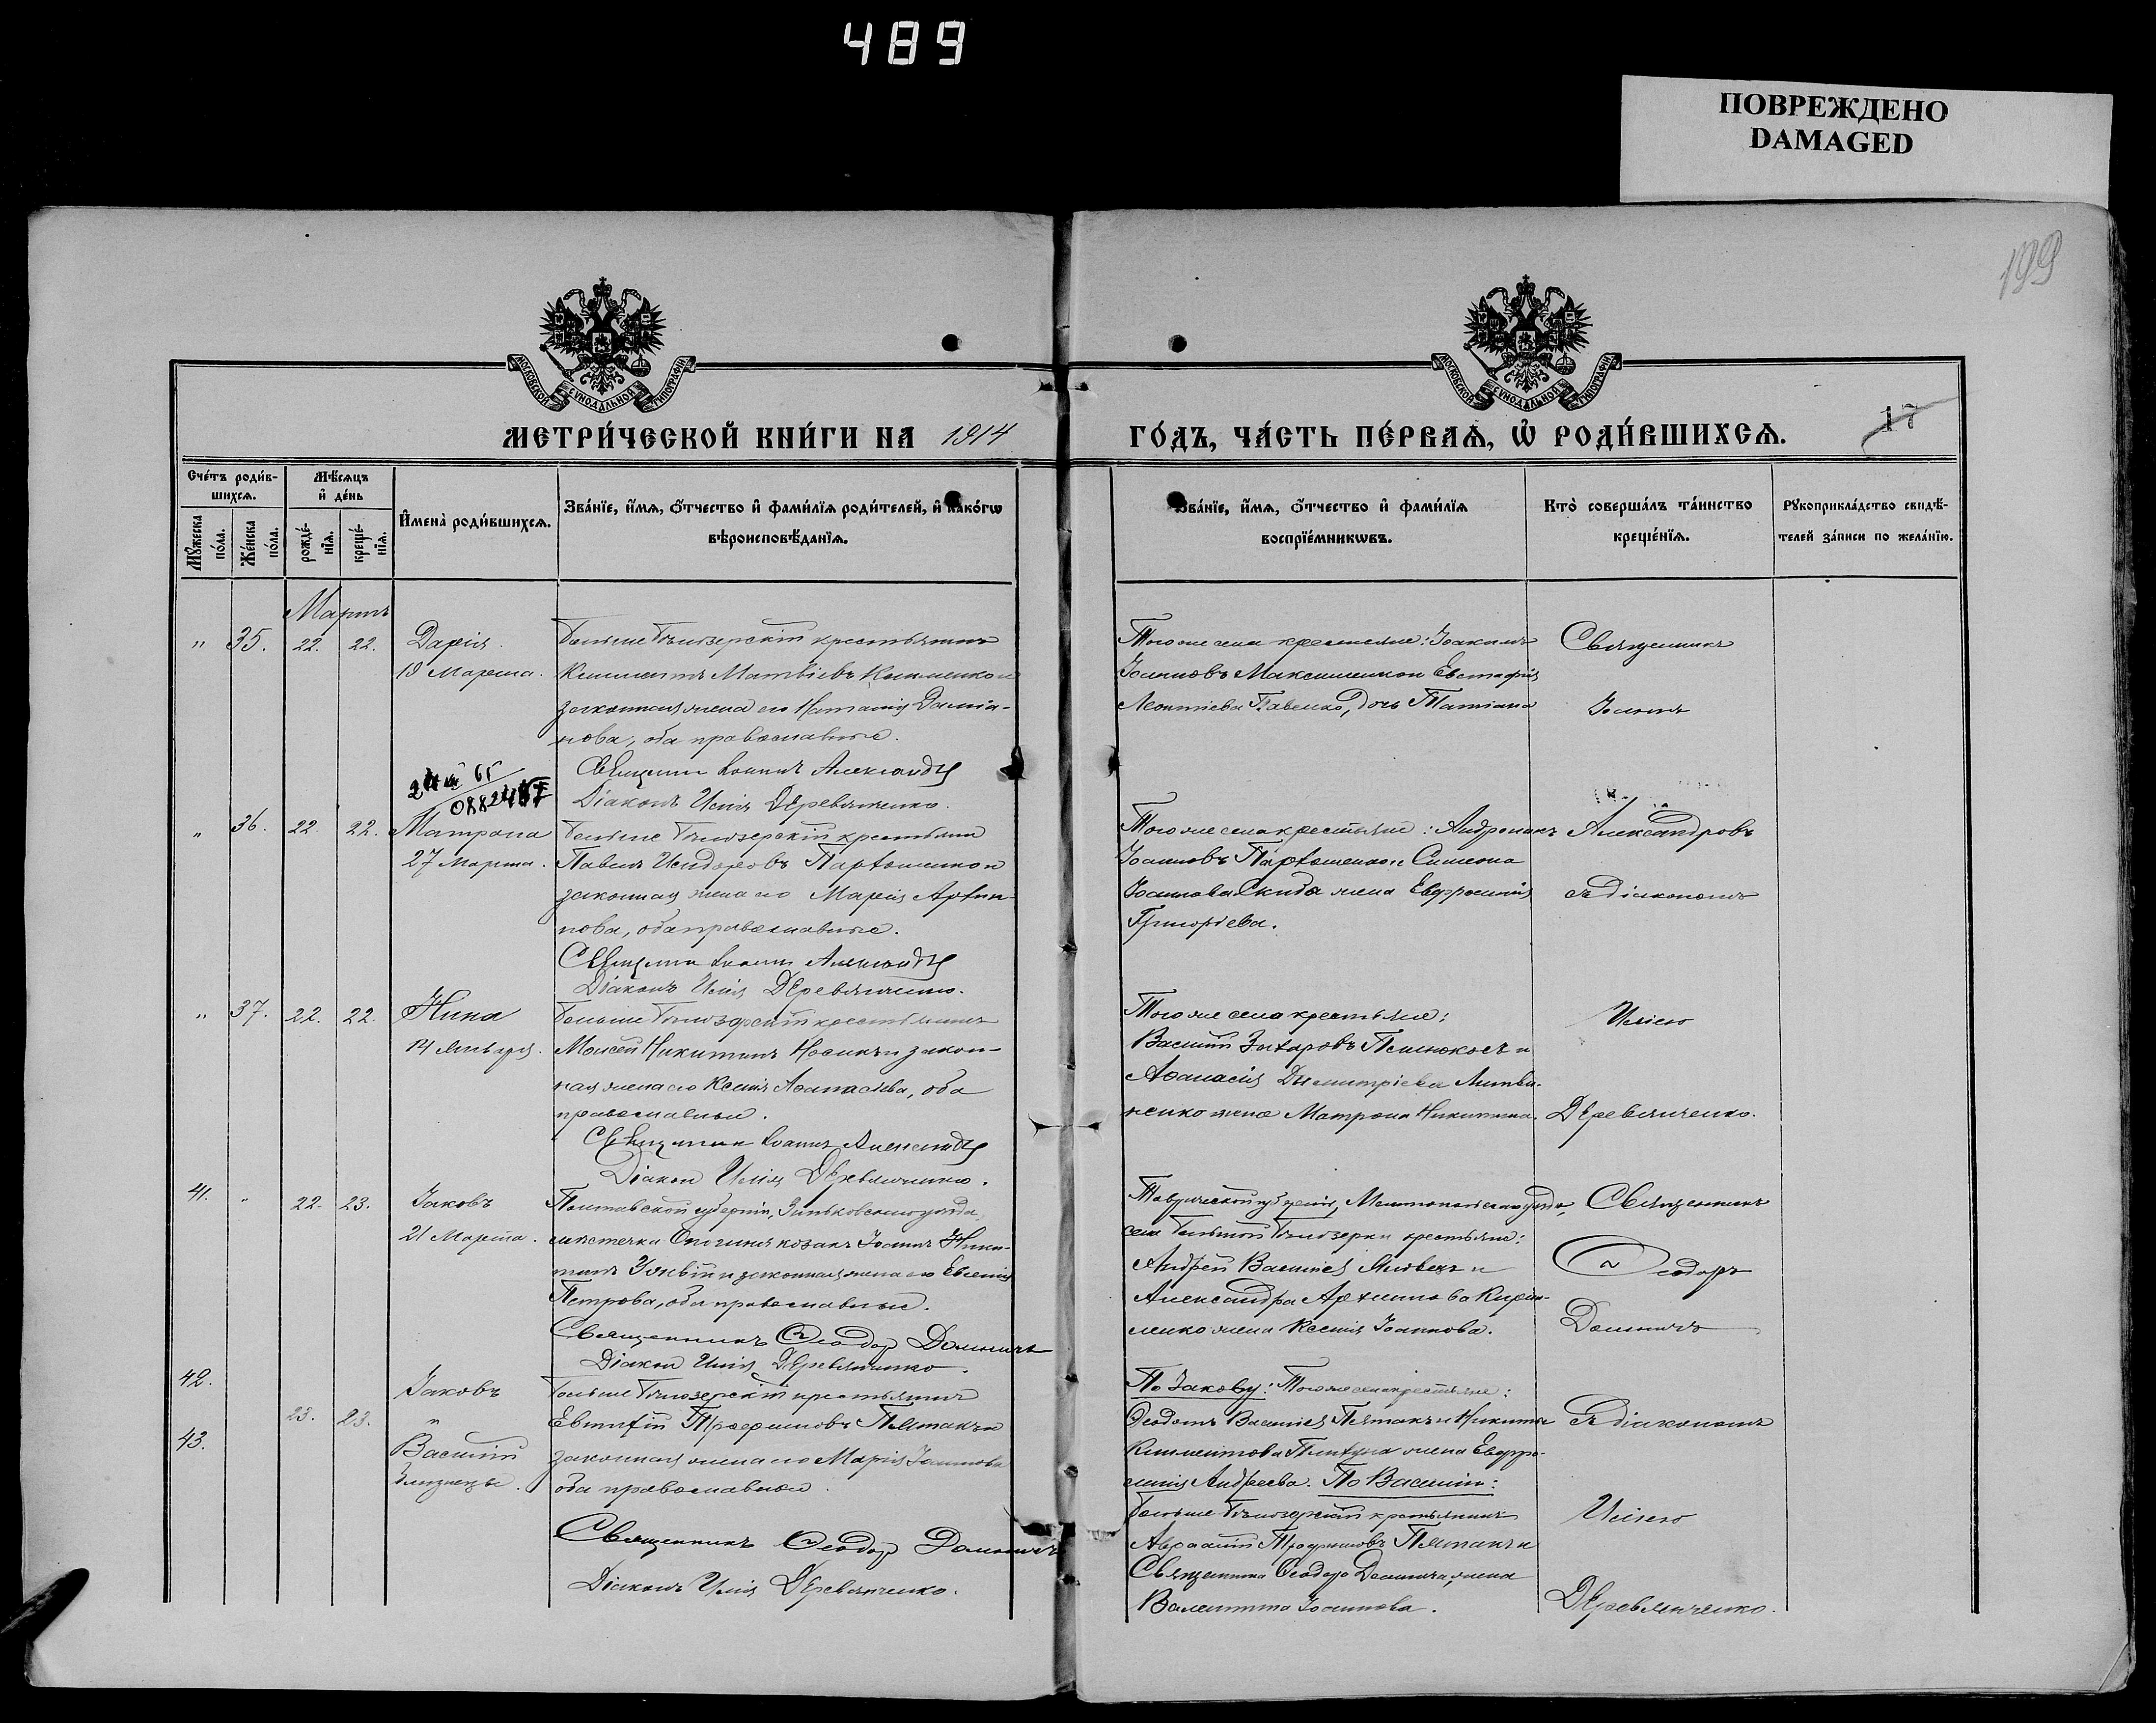 489
ПОВРЕЖДЕНО
DAMAGED
199
МОСКОВСКОЙ СѴНОДАЛЬНОЙ ТИПОГРАФІИ
МОСКОВСКОЙ СѴНОДАЛЬНОЙ ТИПОГРАФІИ
МЕТРИ́ЧЕСКОЙ КНИ́ГИ НА 1914
ГО́ДЪ, ЧА́СТЬ ПЕ́РВАѦ, Ѡ҆ РОДИ́ВШИХСѦ.
17
Сче́тъ роди́в-
шихсѧ.
Мѣ́сѧцъ
и҆ де́нь
Мꙋ́жеска
по́ла.
Же́нска
по́ла.
рожде́-
нїѧ.
креще́-
нїѧ.
И҆мена̀ роди́вшихсѧ.
Зва́нїе, и҆́мѧ, ѻ҆́тчество и҆ фами́лїѧ роди́телей, и҆ како́гѡ
вѣроисповѣ́данїѧ.
Зва́нїе, и҆́мѧ, ѻ҆́тчество и҆ фами́лїѧ
воспрїе́мникѡвъ.
Кто̀ соверша́лъ та́инство
креще́нїѧ.
Рꙋкоприкла́дство свидѣ́-
телей за́писи по жела́нїю.
Мартъ
" 35. 22. 22. Дарія
19 Марта.
Больше Бѣлозерскій крестьянинъ
Климентъ Матвіевъ Клименко и
законная жена его Наталія Даміа-
нова, оба православные.
Священникъ Іоаннъ Александр
Діаконъ Илія Деревянченко.
Того же села крестьяне: Іоакимъ
Іоанновъ Максименко и Евстафія
Леонтіева Павленко, дочь Татіана
Священникъ
Іоаннъ
" 36. 22. 22. Матрона
27 Марта.
Больше Бѣлозерскій крестьянин
Павелъ Исидоровъ Пархоменко и
законная жена его Марія Архип-
пова, оба православные.
Священник Іоанн Александр
Діаконъ Илія Деревянченко.
Того же села крестьяне: Андроникъ
Іоанновъ Пархоменко и Симеона
Іоаннова Скида жена Евфросинія
Григоріева.
Александровъ
съ діакономъ
" 37. 22. 22. Нина
14 Января.
Больше Бѣлозерскій крестьянинъ
Моисей Никитинъ Носикъ и закон-
ная жена его Ксенія Аѳанасіева, оба
православные.
Священник Іоаннъ Александр
Діакон Илія Деревянченко.
Того же села крестьяне:
Василій Захаровъ и
Аѳанасія Димитріева Литви-
ненко жена Матрона Никитина.
Иліею
Деревянченко.
41. " 22. 23. Іаковъ
21 Марта.
Полтавской губерніи, Зиньковскаго уѣзда,
мѣстечка Опошня козакъ Іоаннъ Ники-
тинъ и законная жена его Евгенія
Петрова, оба православные.
Священникъ Ѳеодор Долинъ
Діакон Илія Деревянченко.
Таврической губерніи, Мелитопольскаго уѣзда,
села Большой Бѣлозерки крестьяне:
Андрей Василіев Яловецъ и
Александра Архипова Кирил-
ленко жена Ксенія Іоаннова.
Священникъ
Ѳеодоръ
42. Іаковъ
23. 23. "
43. Василій
близнецы.
Больше Бѣлозерскій крестьянинъ
Евтихій Трофимовъ Пятакъ и
законная жена его Марія Іоаннова
оба православные.
Священникъ Ѳеодор
Діаконъ Илія Деревянченко.
По Іакову: Того же села крестьяне:
Ѳеодотъ Василіев Пятакъ и Никиты
Климентова жена Евфро-
синія Андреева. По Василію:
Больше Бѣлозерскій крестьянинъ
Авраамій Трофимовъ Пятакъ и
Священника Ѳеодора жена
Валентина Іоаннова.
съ діакономъ
Иліею
Деревянченко.